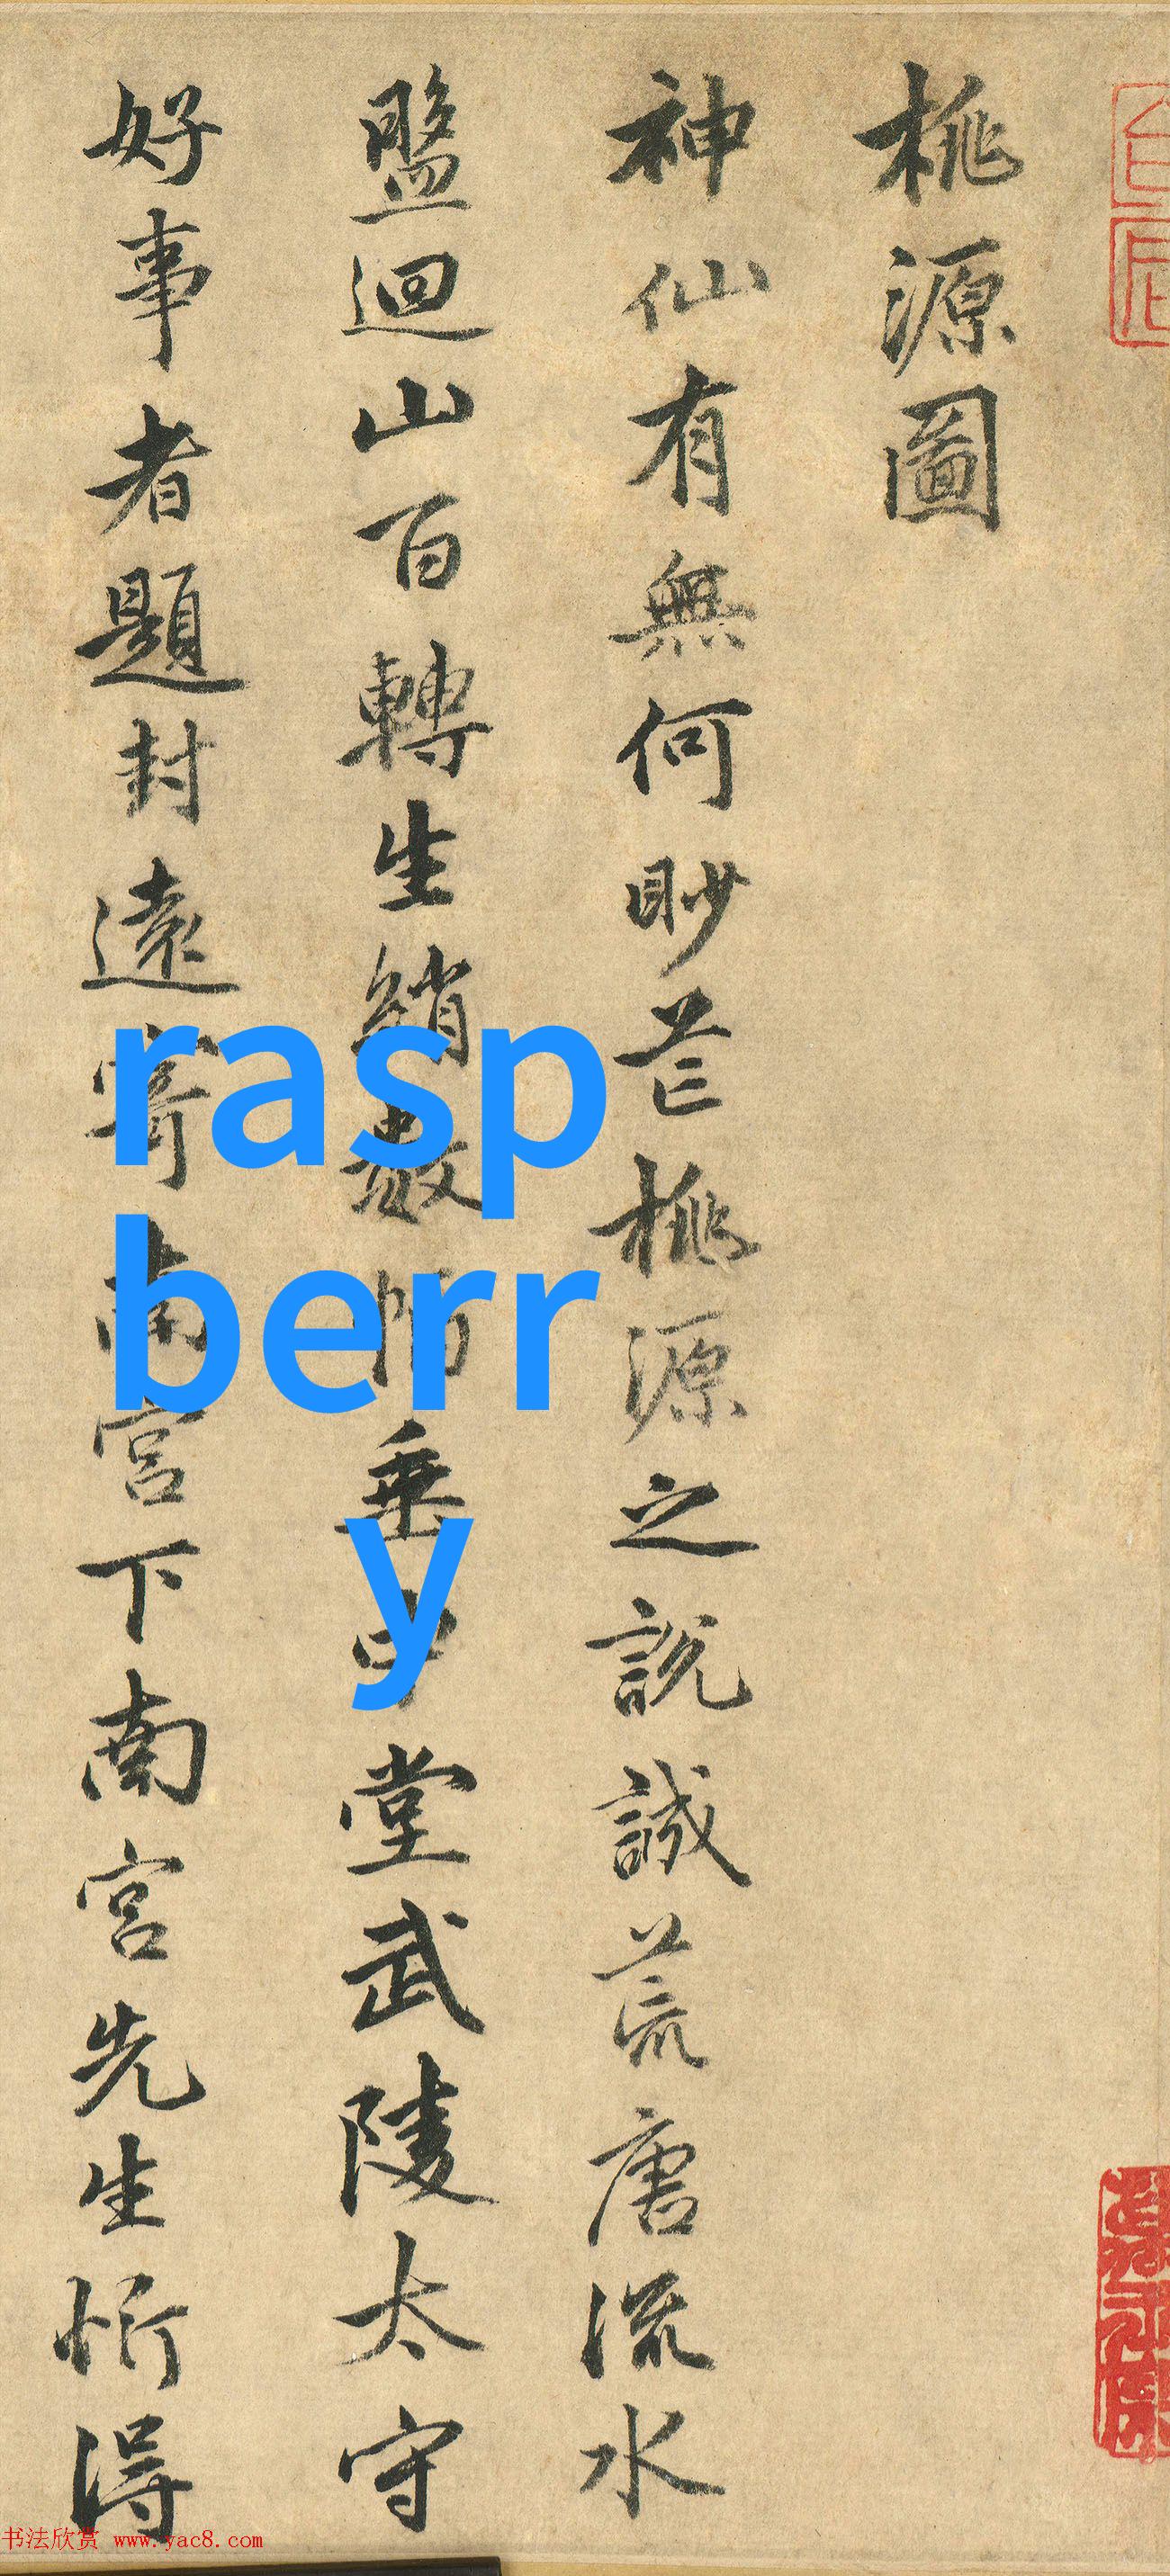 桃源圖
神仙有無何眇芒桃源之說誠荒唐流水
盤迴山百轉生綃數幅垂中堂武陵太守
好事者題封遠寄南宮下南宮先生忻得
rasp
berr
y
书法欣赏 www.yac8.com